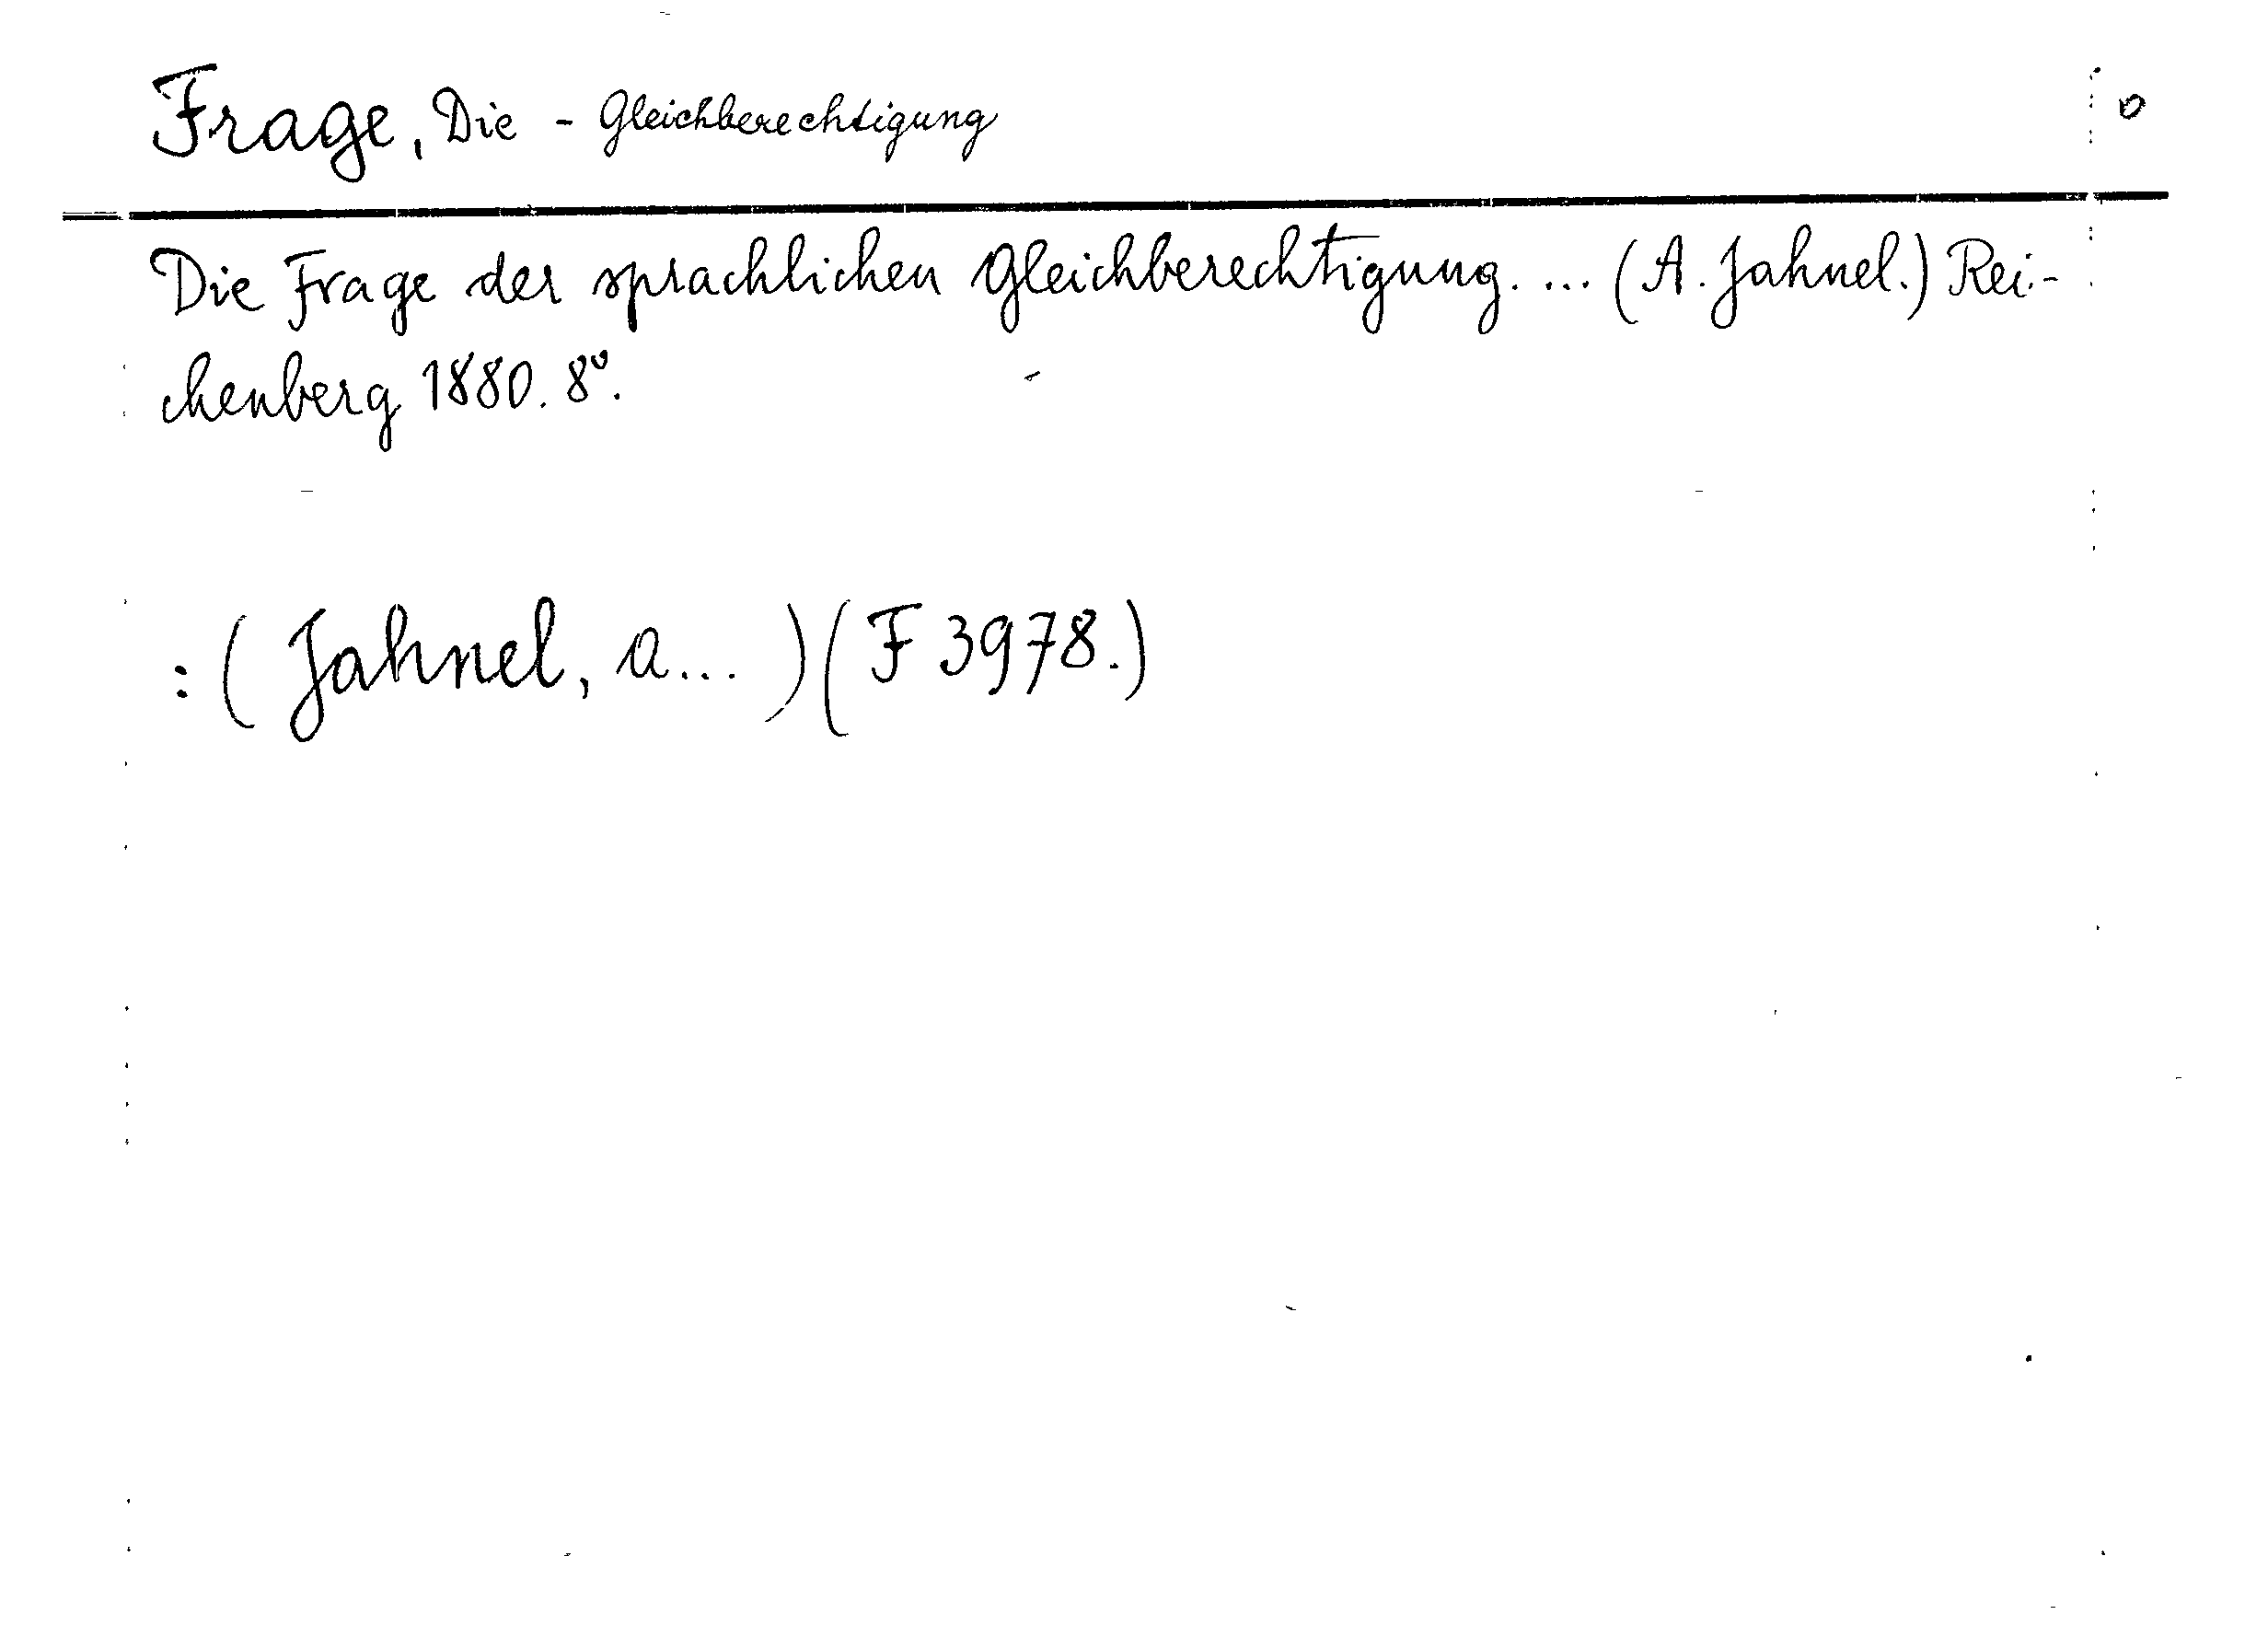 Frage, Die - Gleichberechtigung o
Die Frage der sprachlichen Gleichberechtigung. ... (A. Jahnel.) Rei-
chenberg 1880. 8º.
: ( Jahnel, a... ) ( F 3978.)